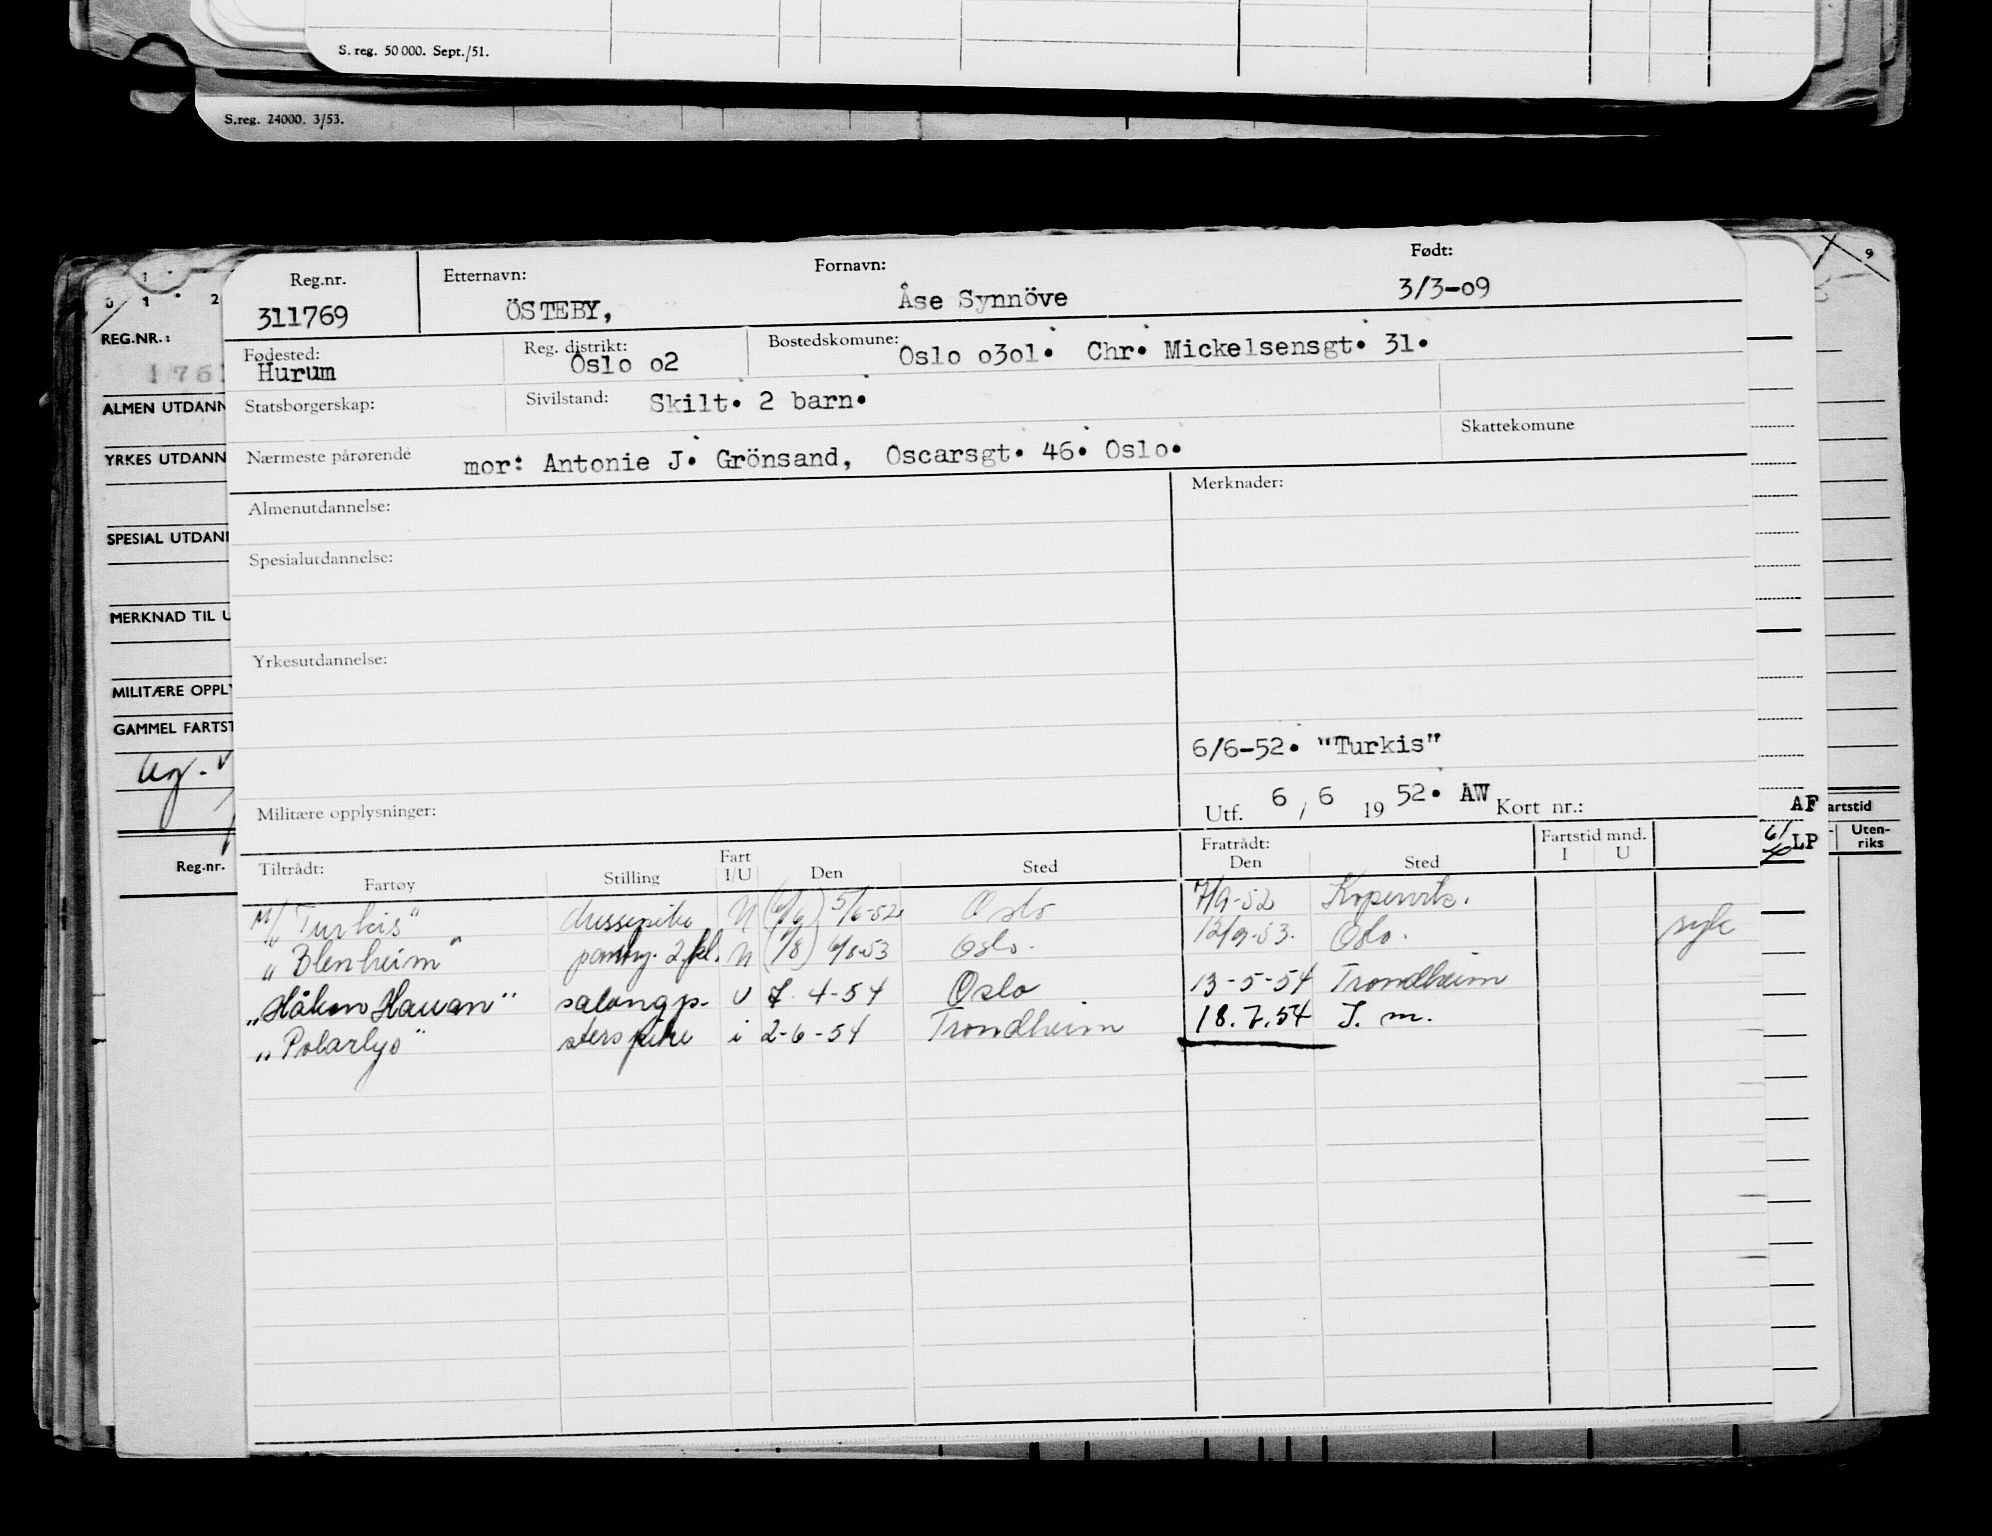 S. reg. 50 000. Sept./51.
S.reg. 24000. 3/53.
REG.NR.:
ALMEN UTDANN
YRKES UTDANN
SPESIAL UTDAN
MERKNAD TIL U
MILITÆRE OPPL
GAMMEL FARTST
Reg.nr.
Reg.nr. Etternavn: Fornavn: Født:
311769 ÖSTEBY, Åse Synnöve 3/3-o9
Fødested: Reg. distrikt: Bostedskomune:
Hurum Oslo o2 Oslo o3ol. Chr. Mickelsensgt. 31.
Statsborgerskap: Sivilstand: Skilt. 2 barn.
Skattekomune
Nærmeste pårørende mor: Antonie J. Grönsand, Oscarsgt. 46. Oslo.
Almenutdannelse: Merknader:
Spesialutdannelse:
Yrkesutdannelse:
6/6-52. "Turkis"
Militære opplysninger: Utf. 6 / 6 19 52. AW Kort nr.:
Tiltrådt: Fratrådt: Fartstid mnd.
Fartøy Stilling Fart I/U Den Sted Den Sted I U
M/ "Turkis" dussepike U (6/6) 5/6-52 Oslo 7/9-52 Kopervik.
"Blenheim" pantry. 2. kl. U 53 Oslo. 12/9-53. Oslo. syk
"Håkon Hauan" salongp. U 7-4-54 Oslo 13-5-54 Trondheim
"Polarlys" terspike i 2-6-54 Trondheim 18.7.54 T. m.
AF
LP
artstid
Uten-
riks
9